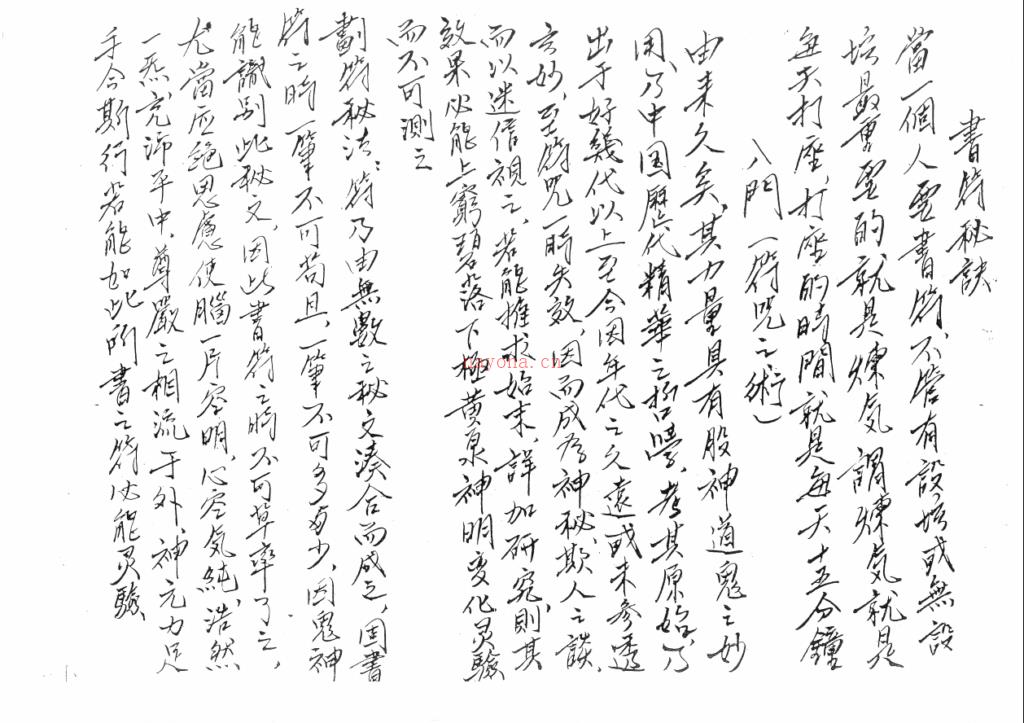 書符秘訣
當一個人要書符,不管有設坛或無設
坛最重要的就是煉气謂煉気就是
每天打座,打座的時間就是每天十五分鐘
入門(符咒之術)
由来久矣,其力量具有股神道鬼之妙
用,乃中国歷代精華之哲學,考其原始,乃
出于好幾代以上至今因年代之久遠或未参透
玄妙,至符咒一時失效,因而成為神秘,欺人之談,
而以迷信視之,若能推求始末,詳加研究,則其
效果必能上窮碧落下極黄泉神明变化灵驗
而不可測之
劃符秘法:符乃由無數之秘文湊合而成之,因書
符之時一筆不可苟且,一筆不可多与少,因鬼神
能識別此秘文,因此書符之時不可草率了之,
尤當应絶思慮使腦一片空明,心空気純,浩然
一炁,充沛平中,尊嚴之相流于外,神元力足
手令斯行若能如此所書之符必能灵驗
nayona.cn